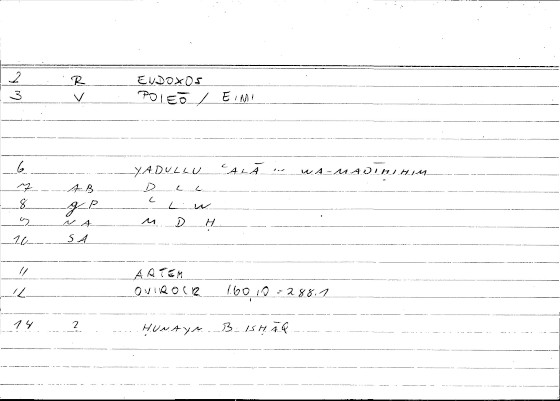 2 R EUDOXOS
3 V POIEŌ / EIMI
6 YADULLU ʿALĀ ... WA-MADĪḤIHIM
7 AB D L L
8 gP ʿ L W
9 NA M D Ḥ
10 SA
11 ARTEM
12 OVIROCR 160,10 = 288.1
14 2 ḤUNAYN B ISḤĀQ